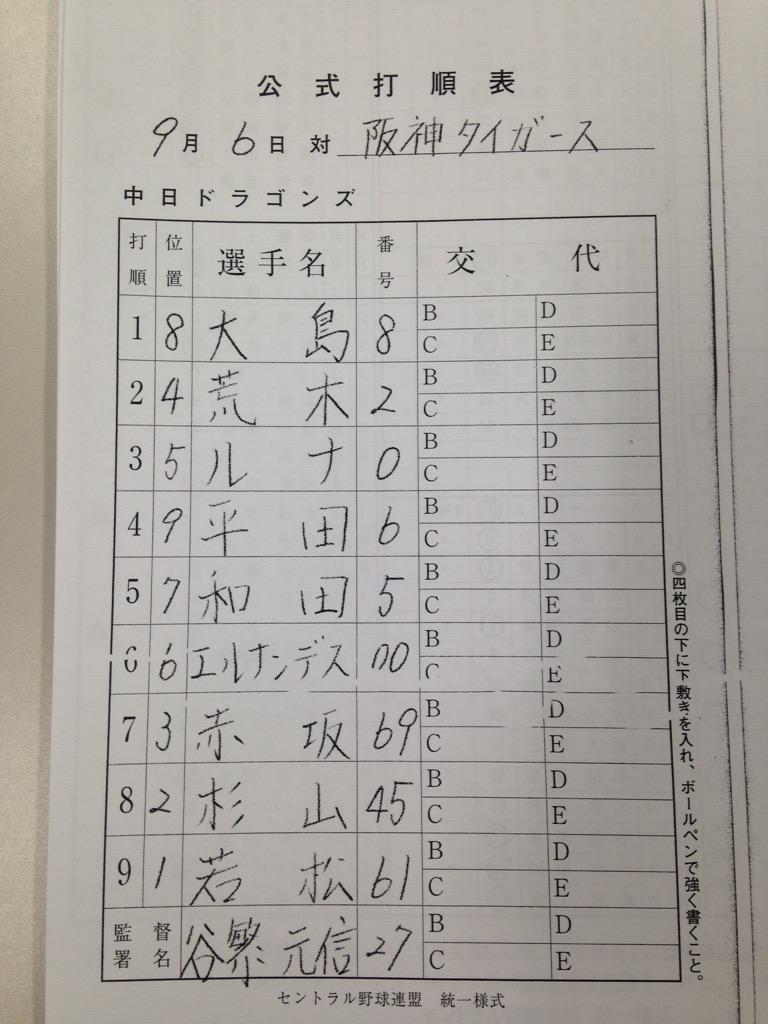 公式打順表
9月6日対 阪神タイガース
中日ドラゴンズ
打順 位置 選手名 番号 交代
1 8 大島 8 B D C E
2 4 荒木 2 B D C E
3 5 ルナ 0 B D C E
4 9 平田 6 B D C E
5 7 和田 5 B D C E
6 6 エルナンデス 00 B D C E
7 3 赤坂 69 B D C E
8 2 杉山 45 B D C E
9 1 若松 61 B D C E
監督署名 谷繁元信 27 B D C E
セントラル野球連盟 統一様式
◎四枚目の下に下敷きを入れ、ボールペンで強く書くこと。